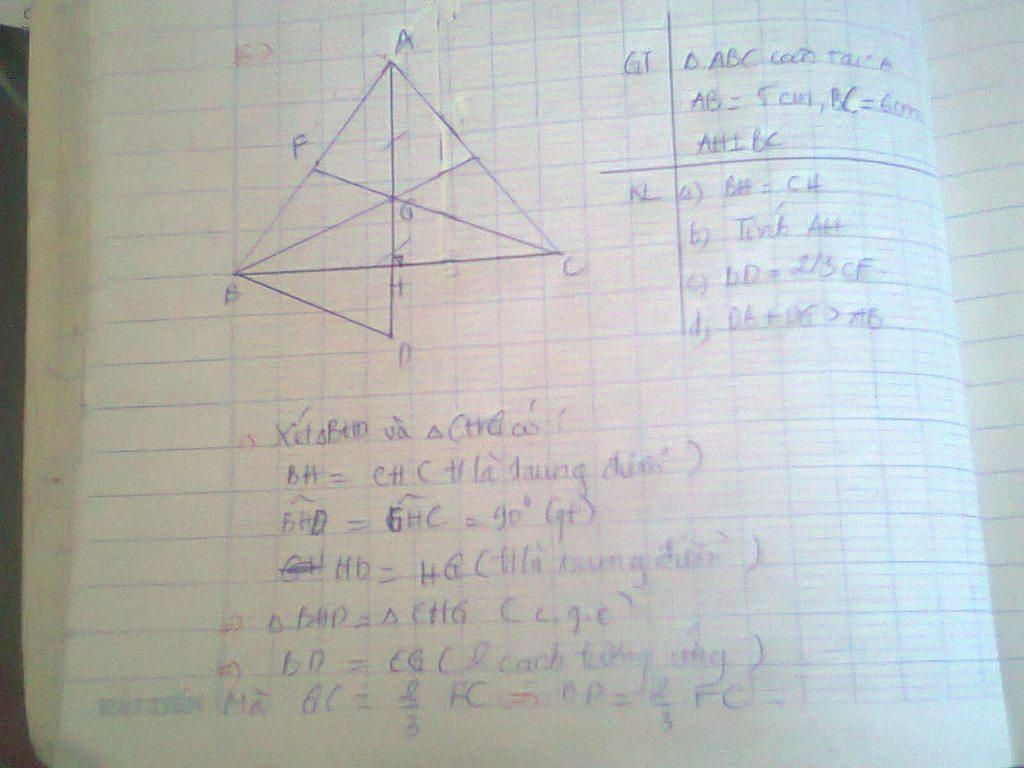 c)
A
F
G
B
H
C
D
GT Δ ABC cân tại A
AB = 5 cm, BC = 6cm
AH⊥BC
KL a) BH = CH
b) Tính AH
c) BD = 2/3 CF
d) DB + DG > AB
c) Xét ΔBHD và ΔCHG có:
BH = CH ( H là trung điểm )
BHD = GHC = 90° (gt)
HD = HG ( H là trung điểm )
=> Δ BHD = Δ CHG ( c.g.c )
=> BD = CG ( 2 cạnh tương ứng )
Mà GC = 2/3 FC => BD = 2/3 FC